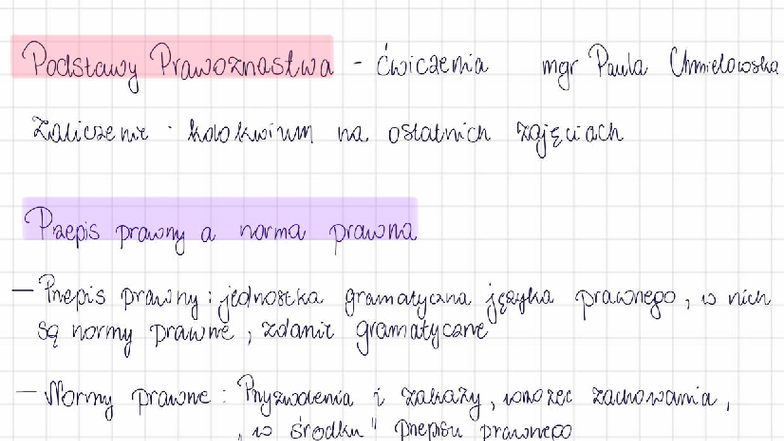 Podstawy Prawoznastwa - Ćwiczenia mgr Paula Chmielowska
Zaliczenie - kolokwium na ostatnich zajęciach
Przepis prawny a norma prawna
— Przepis prawny : jednostka gramatyczna języka prawnego, w nich
są normy prawne, zdanie gramatyczne
— Normy prawne : Przyzwolenia i zakazy, wzorzec zachowania,
„w środku" przepisu prawnego